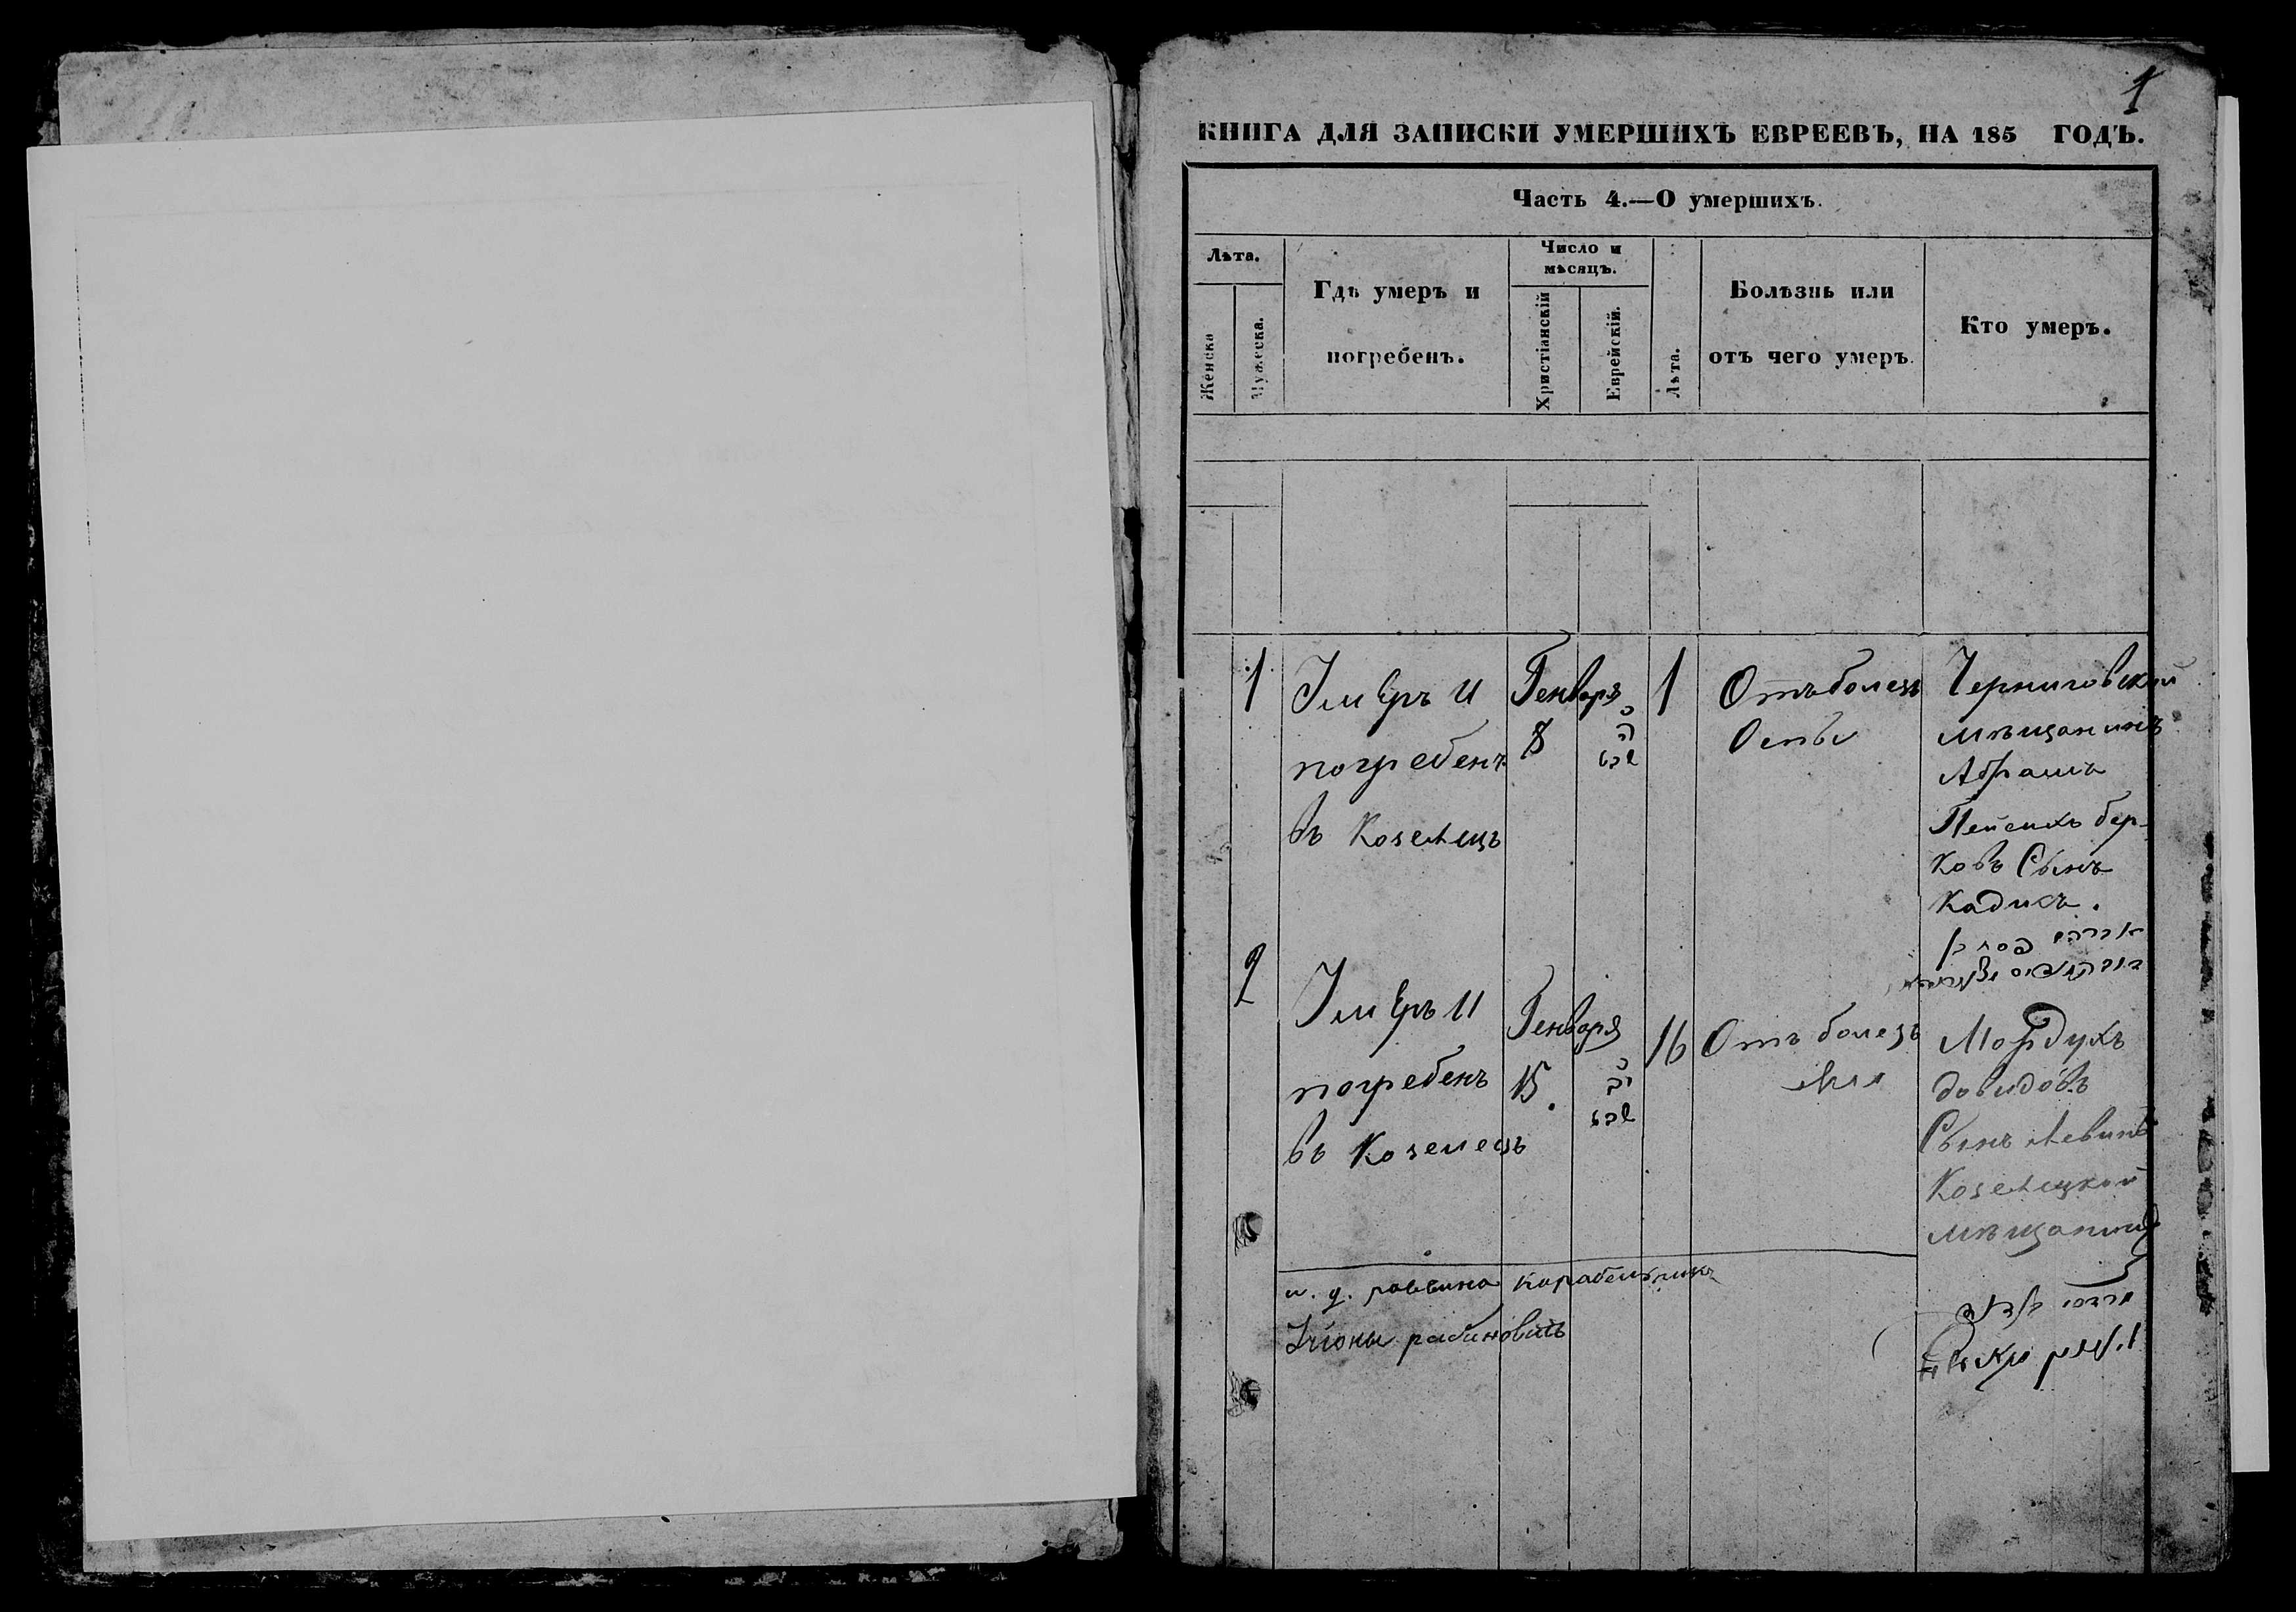 1
КНИГА ДЛЯ ЗАПИСКИ УМЕРШИХЪ ЕВРЕЕВЪ, НА 185 ГОДЪ.
Часть 4.—О умершихъ.
Лѣта.
Женска
Мужеска.
Гдѣ умеръ и
погребенъ.
Число и
мѣсяцъ.
Христіанскій
Еврейскій.
Лѣта.
Болѣзнь или
отъ чего умеръ.
Кто умеръ.
1
Умеръ и
погребенъ
въ Козелецъ
Генваря
8
שבט
1
Отъ болезн
Оспы
Черниговский
мѣщанинъ
Абрамъ
Бер-
ковъ Сынъ
2
Умеръ и
погребенъ
въ Козелецъ
Генваря
15.
שבט
16
Отъ болезн
Мордухъ
Довидовъ
Сынъ Левинъ
Козелецкий
мѣщанинъ
и. д. раввина Корабельникъ
рабиновичъ